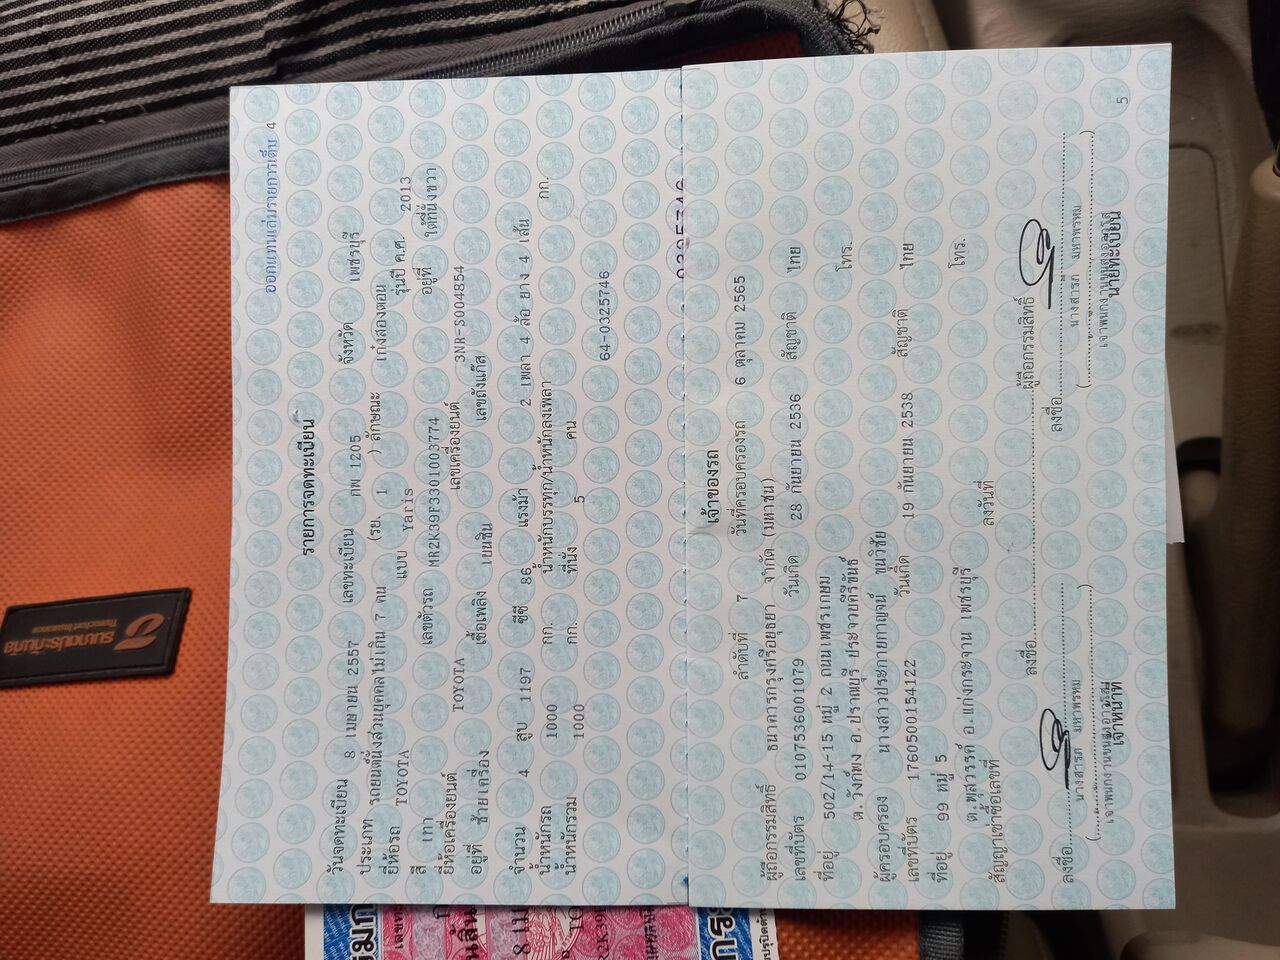 ออกแทนเล่มรายการเต็ม 4
รายการจดทะเบียน
วันจดทะเบียน 8 เมษายน 2557 เลขทะเบียน กพ 1205 จังหวัด เพชรบุรี
ประเภท รถยนต์นั่งส่วนบุคคลไม่เกิน 7 คน (รย. 1 ) ลักษณะ เก๋งสองตอน
ยี่ห้อรถ TOYOTA แบบ Yaris รุ่นปี ค.ศ. 2013
สี เทา เลขตัวรถ MR2K39F3301003774 อยู่ที่ ใต้ที่นั่งขวา
ยี่ห้อเครื่องยนต์ TOYOTA เลขเครื่องยนต์ 3NR-S004854
อยู่ที่ ซ้ายเครื่อง เชื้อเพลิง เบนซิน เลขถังแก๊ส
จำนวน 4 สูบ 1197 ซีซี 86 แรงม้า 2 เพลา 4 ล้อ ยาง 4 เส้น
น้ำหนักรถ 1000 กก. น้ำหนักบรรทุก/น้ำหนักลงเพลา กก.
น้ำหนักรวม 1000 กก. ที่นั่ง 5 คน
64-0325746
เจ้าของรถ
ลำดับที่ 7 วันที่ครอบครองรถ 6 ตุลาคม 2565
ผู้ถือกรรมสิทธิ์ ธนาคารกรุงศรีอยุธยา จำกัด (มหาชน)
เลขที่บัตร 0107536001079 วันเกิด 28 กันยายน 2536 สัญชาติ ไทย
ที่อยู่ 502/14-15 หมู่ 2 ถนนเพชรเกษม
ต.วังก์พง อ.ปราณบุรี ประจวบคีรีขันธ์ โทร.
ผู้ครอบครอง นางสาวประกายกาญจน์ ขุนวิชัย
เลขที่บัตร 1760500154122 วันเกิด 19 กันยายน 2538 สัญชาติ ไทย
ที่อยู่ 99 หมู่ 5
ต.พุสวรรค์ อ.แก่งกระจาน เพชรบุรี โทร.
สัญญาเช่าซื้อเลขที่ ลงวันที่
ลงชื่อ ผู้ถือกรรมสิทธิ์
ลงชื่อ ลงชื่อ
นางสารภี มหาพรหม นางสารภี มหาพรหม
เจ้าหน้าที่ นายทะเบียน
5
ธนชาตประกันภัย
Thanachart Insurance